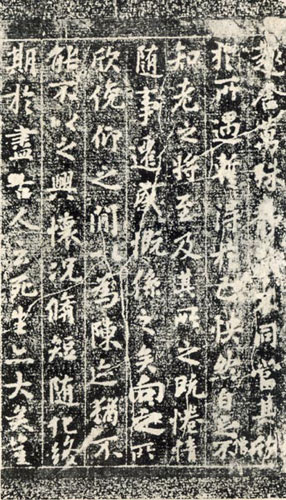 趣舍萬殊靜躁不同當其欣
於所遇暫得於己快然自足不
知老之將至及其所之既惓情
隨事遷感慨係之矣向之所
欣俛仰之間以為陳迹猶不
能不以之興懷況脩短隨化終
期於盡古人云死生亦大矣豈